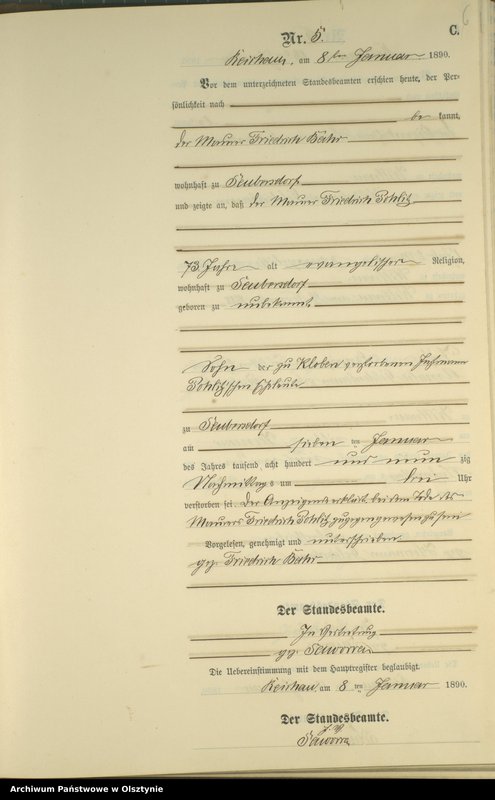 6
C.
Nr. 5.
am 8ten Januar 1890.
Vor dem unterzeichneten Standesbeamten erschien heute, der Per-
sönlichkeit nach
be kannt,
der Maurer Friedrich Bähr
wohnhaft zu Seubersdorf
und zeigte an, daß der Maurer Friedrich Pohlitz
73 Jahre alt evangelischer Religion,
wohnhaft zu Seubersdorf
geboren zu unbekannt
Sohn der zu Kloben verstorbenen
Pohlitz'schen Eheleute
zu Seubersdorf
am sieben ten Januar
des Jahres tausend acht hundert und neun zig
Nachmittag s um drei Uhr
verstorben sei. Der Anzeigende erklärt, bei dem Tode des
Maurers Friedrich Pohlitz zugegen gewesen zu sein
Vorgelesen, genehmigt und unterschrieben
gez. Friedrich Bähr
Der Standesbeamte.
In Vertretung
gez. Saworra
Die Uebereinstimmung mit dem Hauptregister beglaubigt.
am 8 ten Januar 1890.
Der Standesbeamte.
Saworra
Archiwum Państwowe w Olsztynie